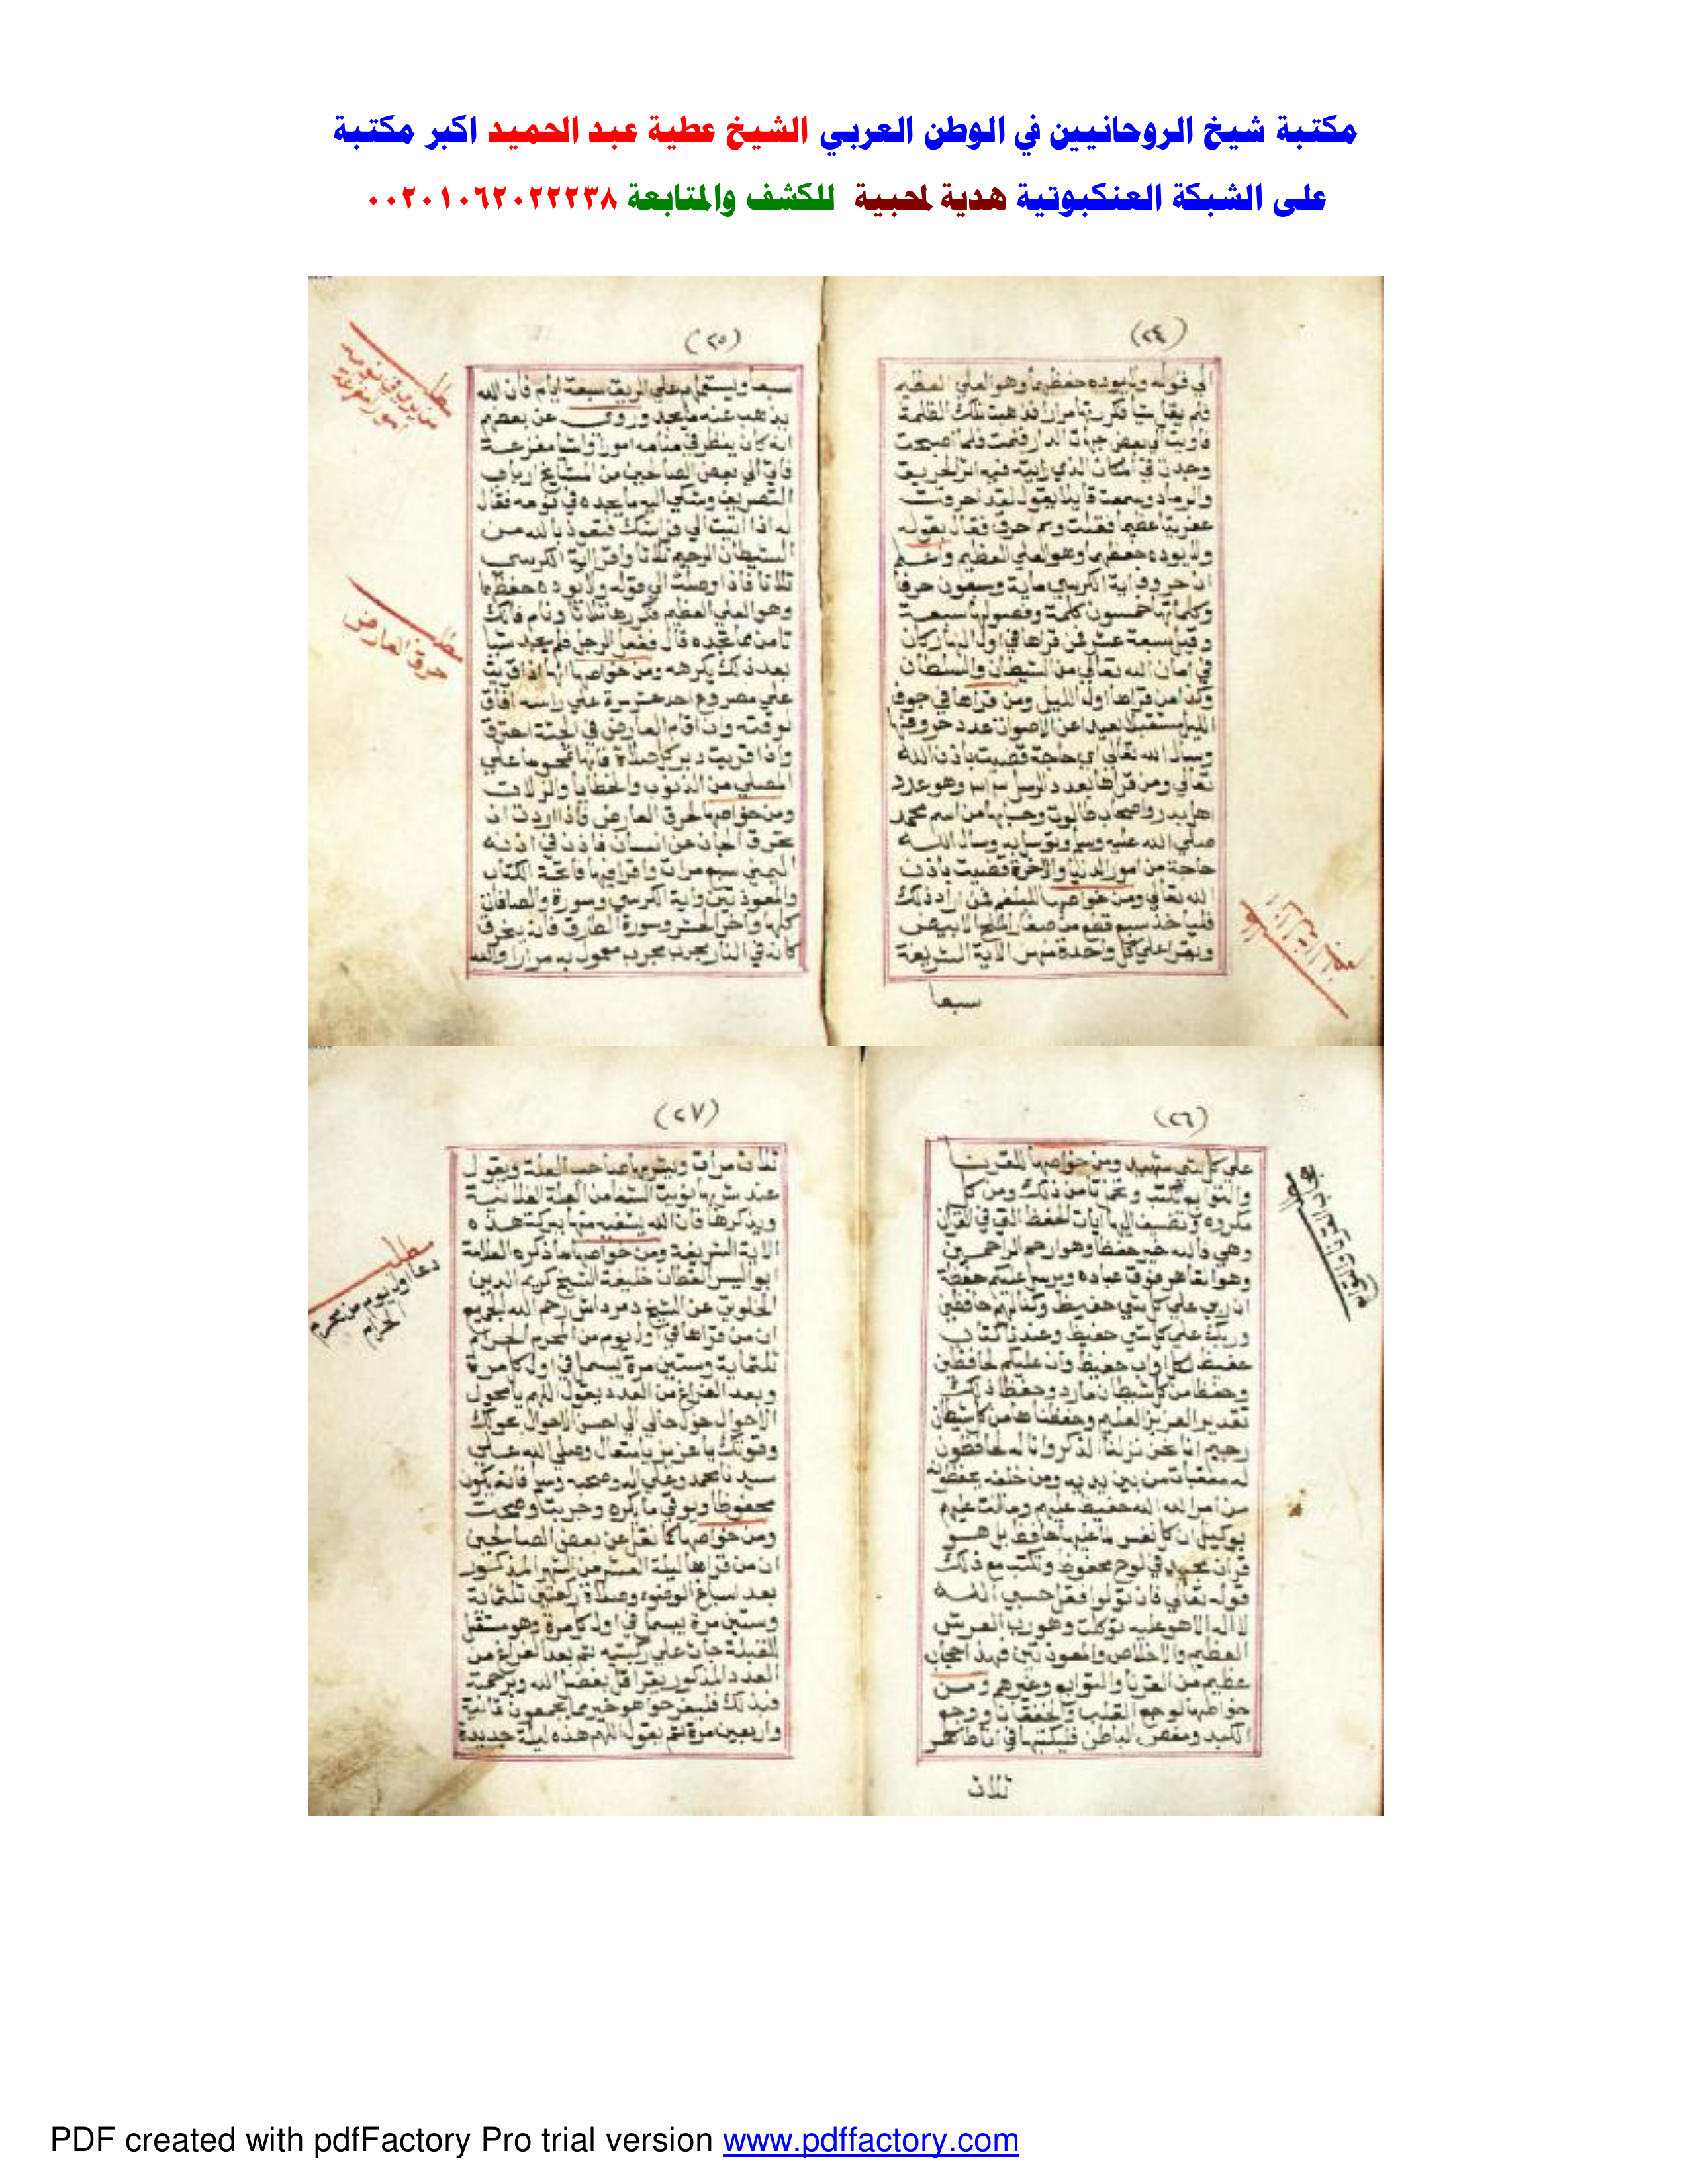 مكتبة شيخ الروحانيين في الوطن العربي الشيخ عطية عبد الحميد اكبر مكتبة
على الشبكة العنكبوتية هدية لمحبية للكشف والمتابعة ٠٠٢٠١٠٦٢٠٢٢٢٣٨
(٢٤)
الي قوله ولا يوده حفظهما وهو العلي العظيم
فلم يقل شيا فكررتها مرارا فذهبت تلك الظلمة
فاويت الي بعض جهات الدار فنمت فلما اصبحت
وجدت في المكان الذي رايته فيه اثر الحريق
والرماد وسمعت قايلا يقول لقد احرقت
عفريتا عظيما فقلت وبم حرق فقال بقوله
ولا يوده حفظهما وهو العلي العظيم واعلم
ان حروف اية الكرسي ماية وسبعون حرفا
وكلماتها خمسون كلمة وفصولها سبعة
وقيل سبعة عشر فمن قراها في اول النهار كان
في امان الله تعالي من الشيطان والسلطان
وكذا من قراها اول الليل ومن قراها في جوف
الليل مستقبلا بعيدا عن الاصوات عدد حروفها
وسال الله تعالي اي حاجة قضيت باذن الله
تعالي ومن قراها بعدد الرسل ٣١٣ وهو عدد
اهل بدر واصحاب طالوت وحسابها من اسم محمد
صلي الله عليه وسلم وتوسل به وسال الله
حاجة من امور الدنيا والاخرة قضيت باذن
الله تعالي ومن خواصها للبلغم فمن اراد ذلك
فلياخذ سبع قطع من صغار الملح الابيض
ويقرا علي كل واحدة منهن الاية الشريفة
سبعا
(٢٥)
سبعا ويستعمله علي الريق سبعة ايام فان الله
يذهب عنه ما يجد وروي عن بعضهم
انه كان ينظر في منامه امورا واشيا مفزعة
فاتي الي بعض الصالحين من المشايخ ارباب
التصريف وشكي اليه ما يجده في نومه فقال
له اذا اتيت الي فراشك فتعوذ بالله من
الشيطان الرجيم ثلاثا واقرا اية الكرسي
ثلاثا فاذا وصلت الي قوله ولا يوده حفظهما
وهو العلي العظيم فكررها ثلاثا ونام فانك
تامن مما تجده قال ففعل الرجل فلم يجد شيا
بعد ذلك يكرهه ومن خواصها انها اذا قريت
علي مصروع احد عشر مرة علي راسه افاق
لوقته وان اقام العارض في الجثة احترق
واذا قريت دبر كل صلاة فانها تمحو ما علي
المصلي من الذنوب والخطايا والزلات
ومن خواصها لحرق العارض فاذا اردت ان
تحرق الجان عن انسان فاذن في اذنه
اليمني سبع مرات واقرا فيها فاتحة الكتاب
والمعوذتين واية الكرسي وسورة والصافات
كلها واخر الحشر وسورة الطارق فانه يحرق
كانه في النار يجرب مجرب معمول به مرارا والله
مطلب
من يري في نومه
امور مفزعة
مطلب
حرق العارض
(٢٦)
علي كل شي شهيد ومن خواصها للقرينا
والتوابع تكتب وتحمل تامن ذلك ومن كل
مكروه وتضيف اليها ايات الحفظ التي في القران
وهي فالله خير حفظا وهو ارحم الراحمين
وهو القاهر فوق عباده ويرسل عليكم حفظة
ان ربي علي كل شي حفيظ وكنا لهم حافظين
وربك علي كل شي حفيظ وعندنا كتاب
حفيظ لكل اواب حفيظ وان عليكم لحافظين
وحفظا من كل شيطان مارد وحفظا ذلك
تقدير العزيز العليم وحفظناها من كل شيطان
رجيم انا نحن نزلنا الذكر وانا له لحافظون
له معقبات من بين يديه ومن خلفه يحفظونه
من امر الله الله حفيظ عليهم وما انت عليهم
بوكيل ان كل نفس لما عليها حافظ بل هو
قران مجيد في لوح محفوظ وتكتب مع ذلك
قوله تعالي فان تولوا فقل حسبي الله
لا اله الا هو عليه توكلت وهو رب العرش
العظيم والاخلاص والمعوذتين فهذا حجاب
عظيم من القرنا والتوابع وغيرهم ومن
خواصها لوجع القلب والخفقان ووجع
الكبد ومغص الباطن فليكتبها في انا طاهر
ثلاث
(٢٧)
ثلاث مرات ويشربها صاحب العلة ويقول
عند شربها نويت الشفا من العلة الفلانية
ويذكرها فان الله يشفيه منها ببركة هذه
الاية الشريفة ومن خواصها ما ذكره العلامة
ابو اليسر القطان خليفة الشيخ كريم الدين
الخلوتي عن الشيخ دمرداش رحم الله الجميع
ان من قراها في اول يوم من المحرم الحرام
ثلثماية وستين مرة يبسمل في اول كل مرة
وبعد الفراغ من العدد يقول اللهم يا محول
الاحوال حول حالي الي احسن الاحوال بحولك
وقوتك يا عزيز يا متعال وصلي الله علي
سيدنا محمد وعلي اله وصحبه وسلم فانه يكون
محفوظا ويوقي ما يكره وجربت وصحت
ومن خواصها كما نقل عن بعض الصالحين
ان من قراها ليلة العشر من الشهر المذكور
بعد اسباغ الوضوء وصلاة ركعتين ثلثماية
وستين مرة يبسمل في اول كل مرة وهو مستقبل
للقبلة جاث علي ركبتيه ثم بعد الفراغ من
العدد المذكور يقرا قل بفضل الله وبرحمته
فبذلك فليفرحوا هو خير مما يجمعون ثمانية
واربعين مرة ثم يقول اللهم هذه ليلة جديدة
مطلب
دعا اول يوم من محرم
الحرام
PDF created with pdfFactory Pro trial version www.pdffactory.com